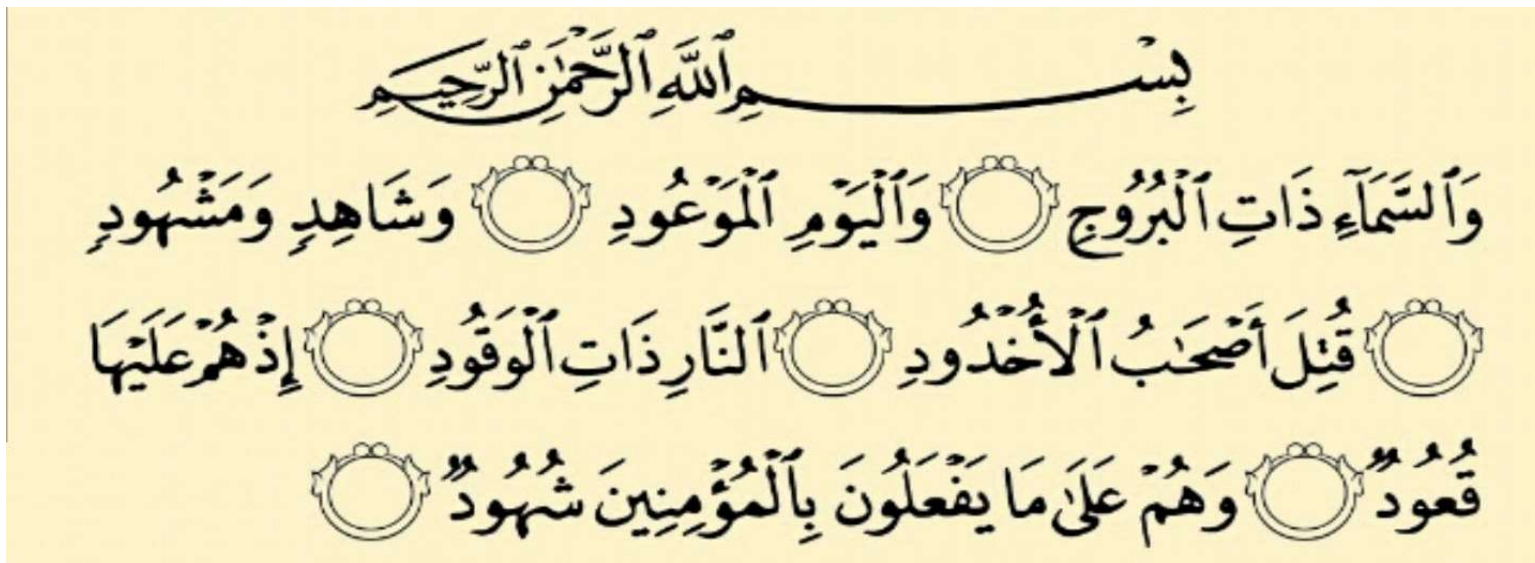 بِسْمِ ٱللَّهِ ٱلرَّحْمَٰنِ ٱلرَّحِيمِ
وَٱلسَّمَآءِ ذَاتِ ٱلْبُرُوجِ وَٱلْيَوْمِ ٱلْمَوْعُودِ وَشَاهِدٍ وَمَشْهُودٍ
قُتِلَ أَصْحَٰبُ ٱلْأُخْدُودِ ٱلنَّارِ ذَاتِ ٱلْوَقُودِ إِذْ هُمْ عَلَيْهَا
قُعُودٌ وَهُمْ عَلَىٰ مَا يَفْعَلُونَ بِٱلْمُؤْمِنِينَ شُهُودٌ